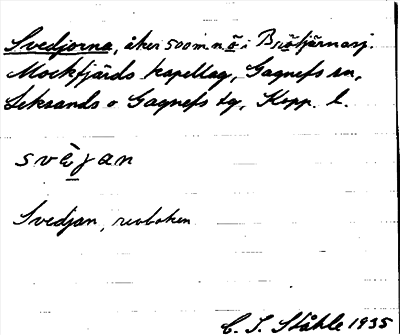 Svedjorna, åker 500 m n ö i Brötjärnasj.
Mockfjärds kapellag, Gagnefs sn,
Leksands o Gagnefs tg, Kopp. l.
svèjan
Svedjan, revboken
C. I. Ståhle 1935